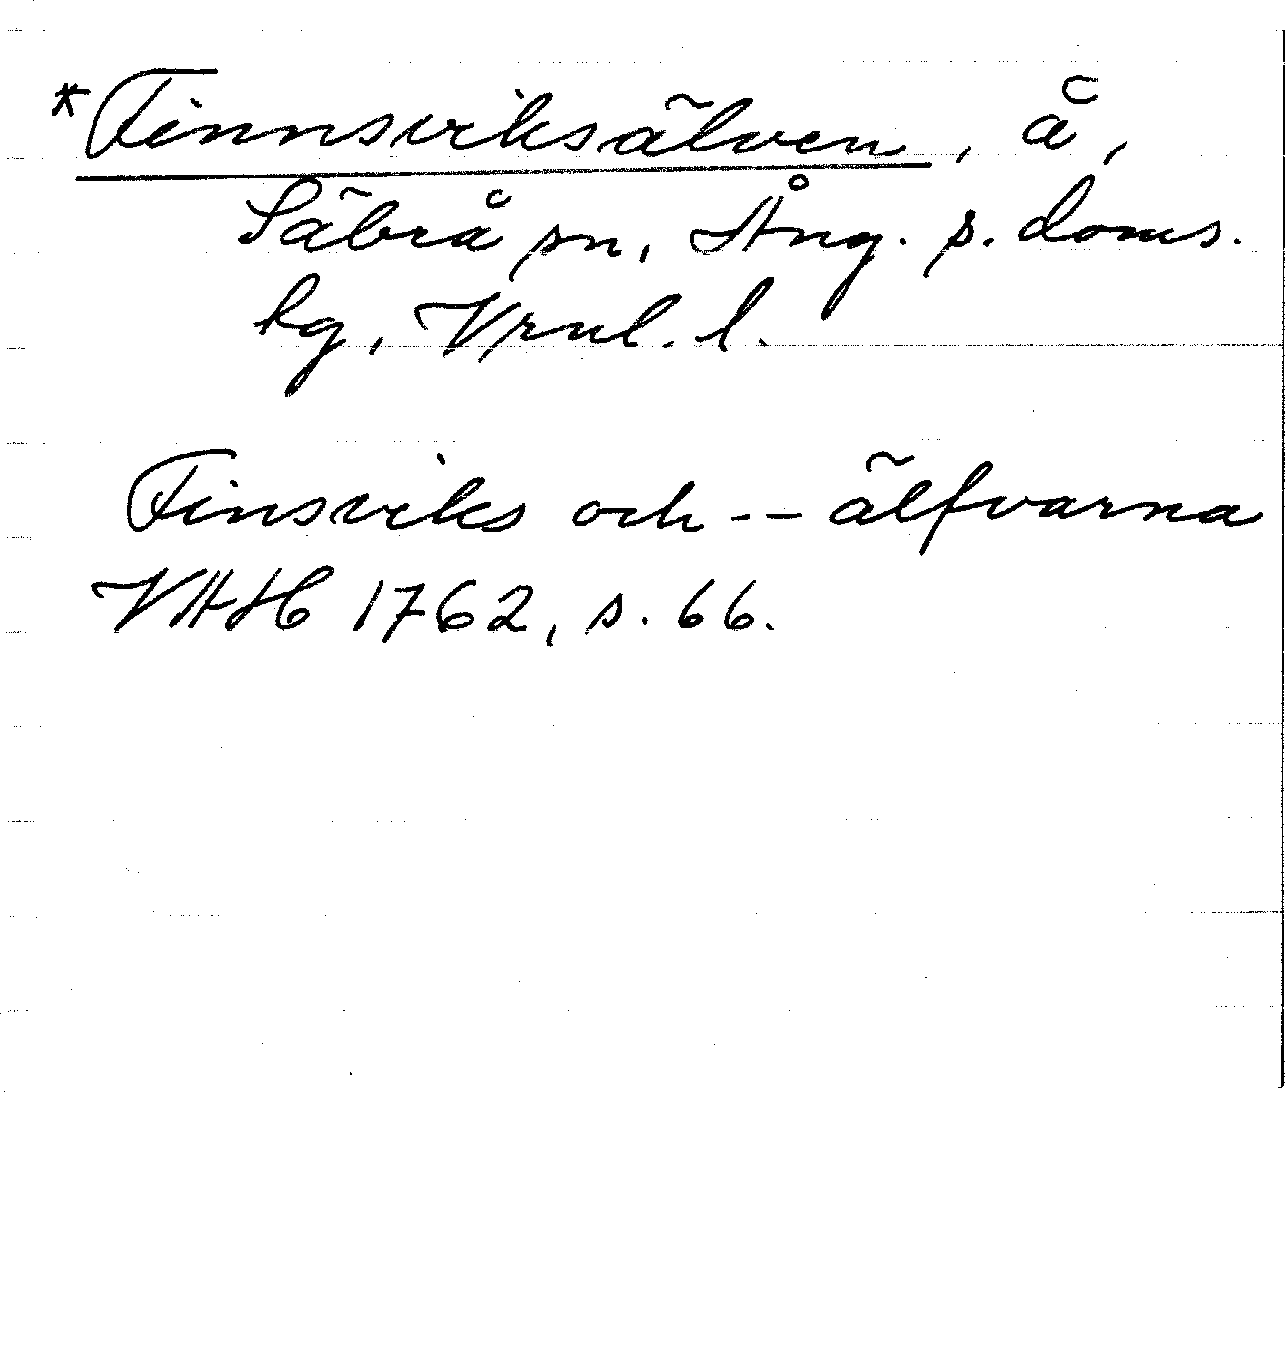 *Finnsviksälven, å,
Säbrå sn, Ång. s. doms.
hg, Vrnl. l.
Finsviks och -- älfvarna
VHH 1762, s. 66.